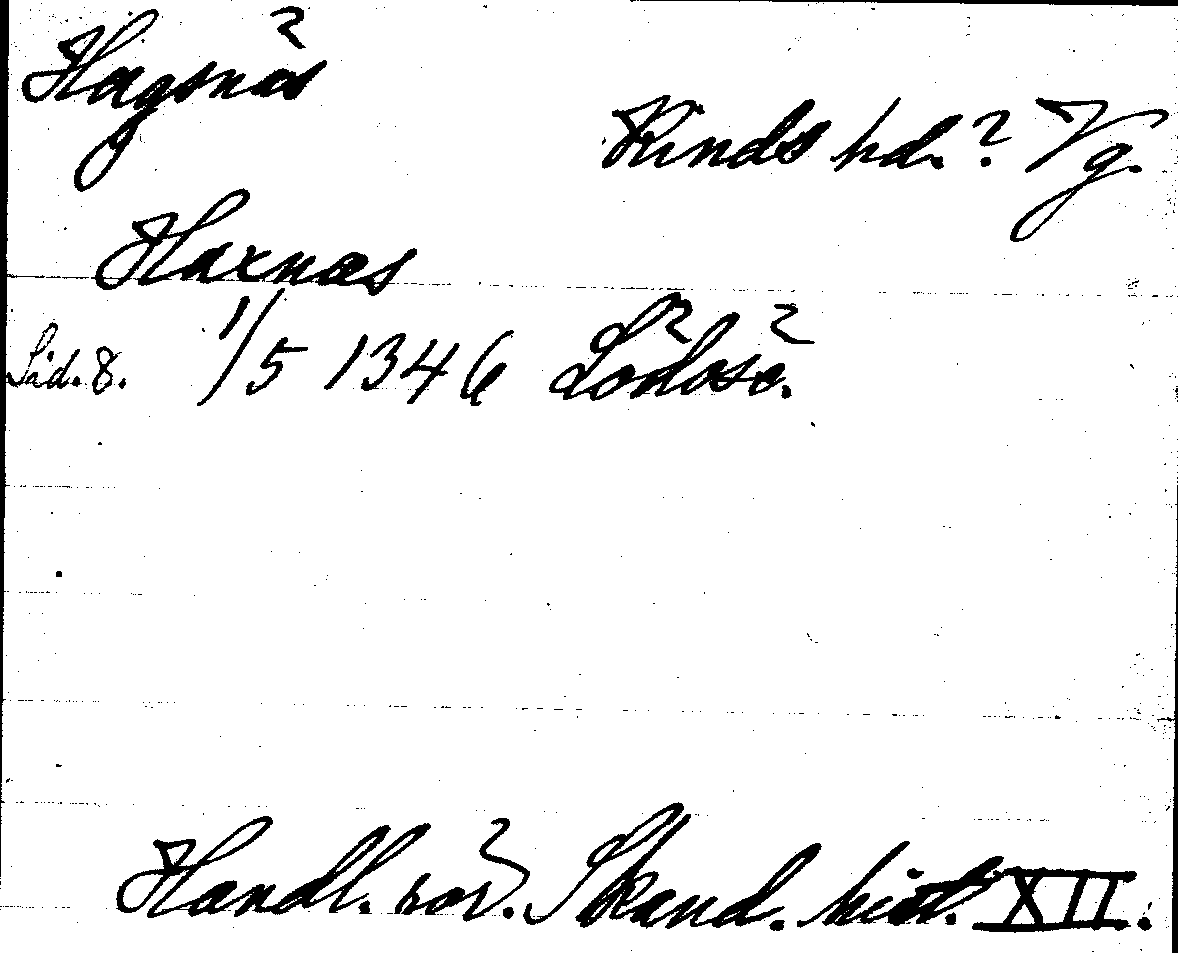 Högsnäs
Kinds hd.? Vg.
Haxnæs
Sid. 8. 1/5 1346 Lödöse.
Handl. rör. Skand. hist. XII.